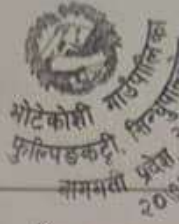 भोटेकोशी गाउँपालिका
फुल्पिङकट्टी, सिन्धुपाल
बागमती प्रदेश